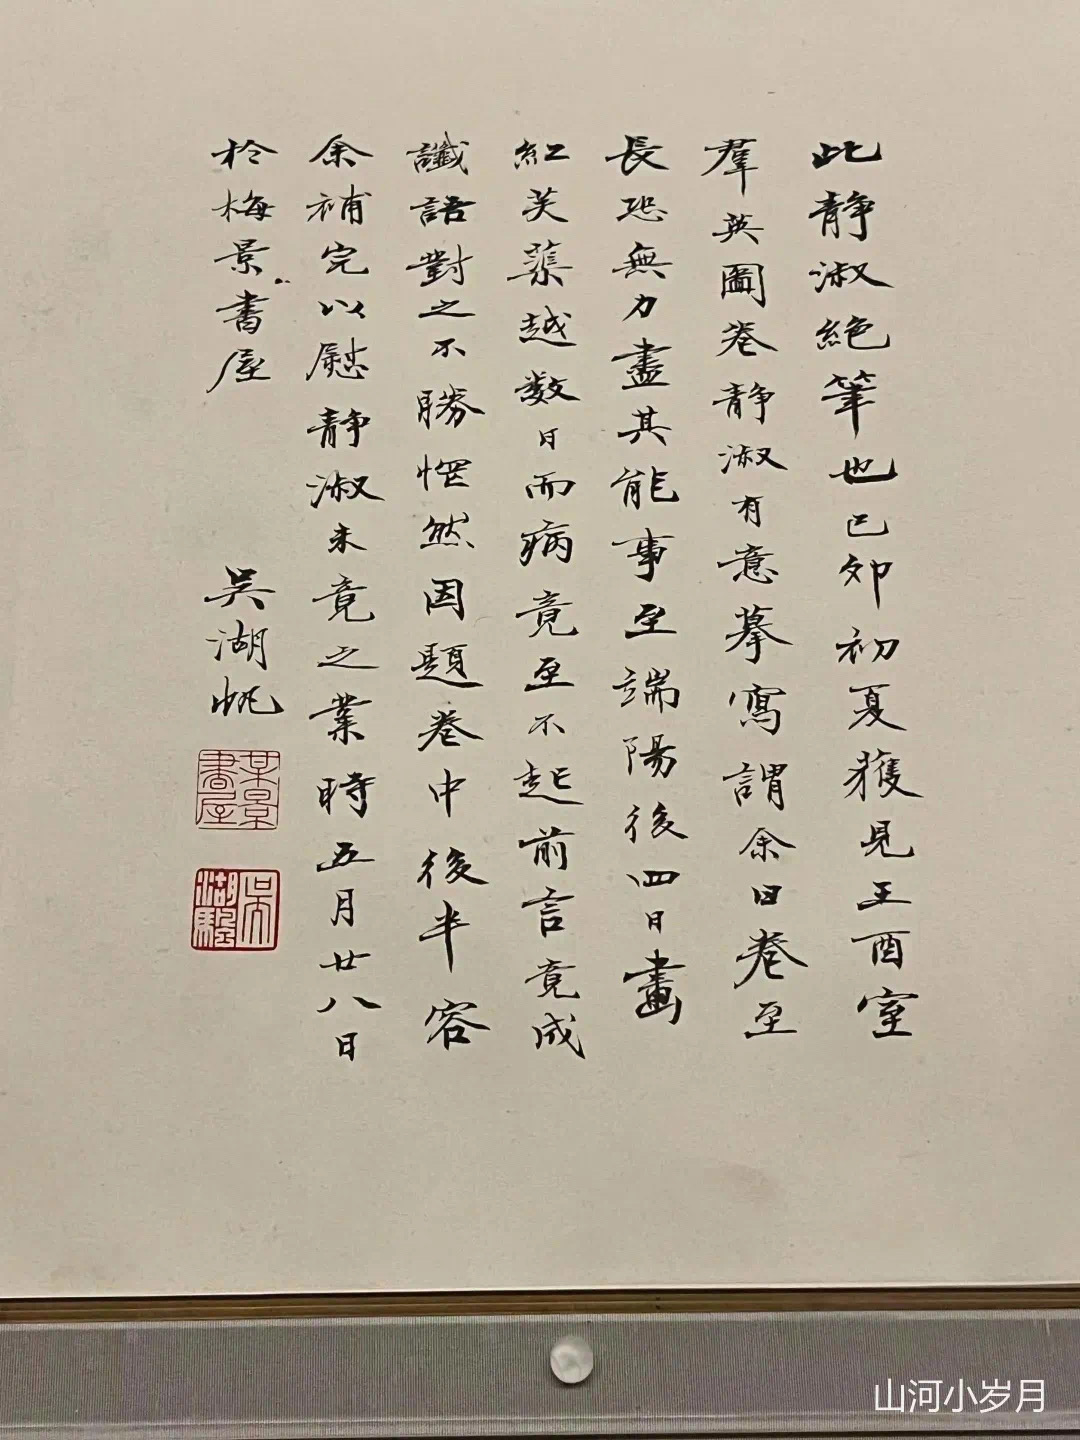 此靜淑絕筆也己卯初夏獲見王酉室
羣英圖卷靜淑有意摹寫謂余曰卷至
長恐無力盡其能事至端陽後四日畫
紅芙蕖越数日而病竟至不起前言竟成
讖語對之不勝惘然因題卷中後半容
余補完以慰靜淑未竟之業時五月廿八日
於梅景書屋
吳湖帆
某景書屋
吳湖颿
山河小岁月